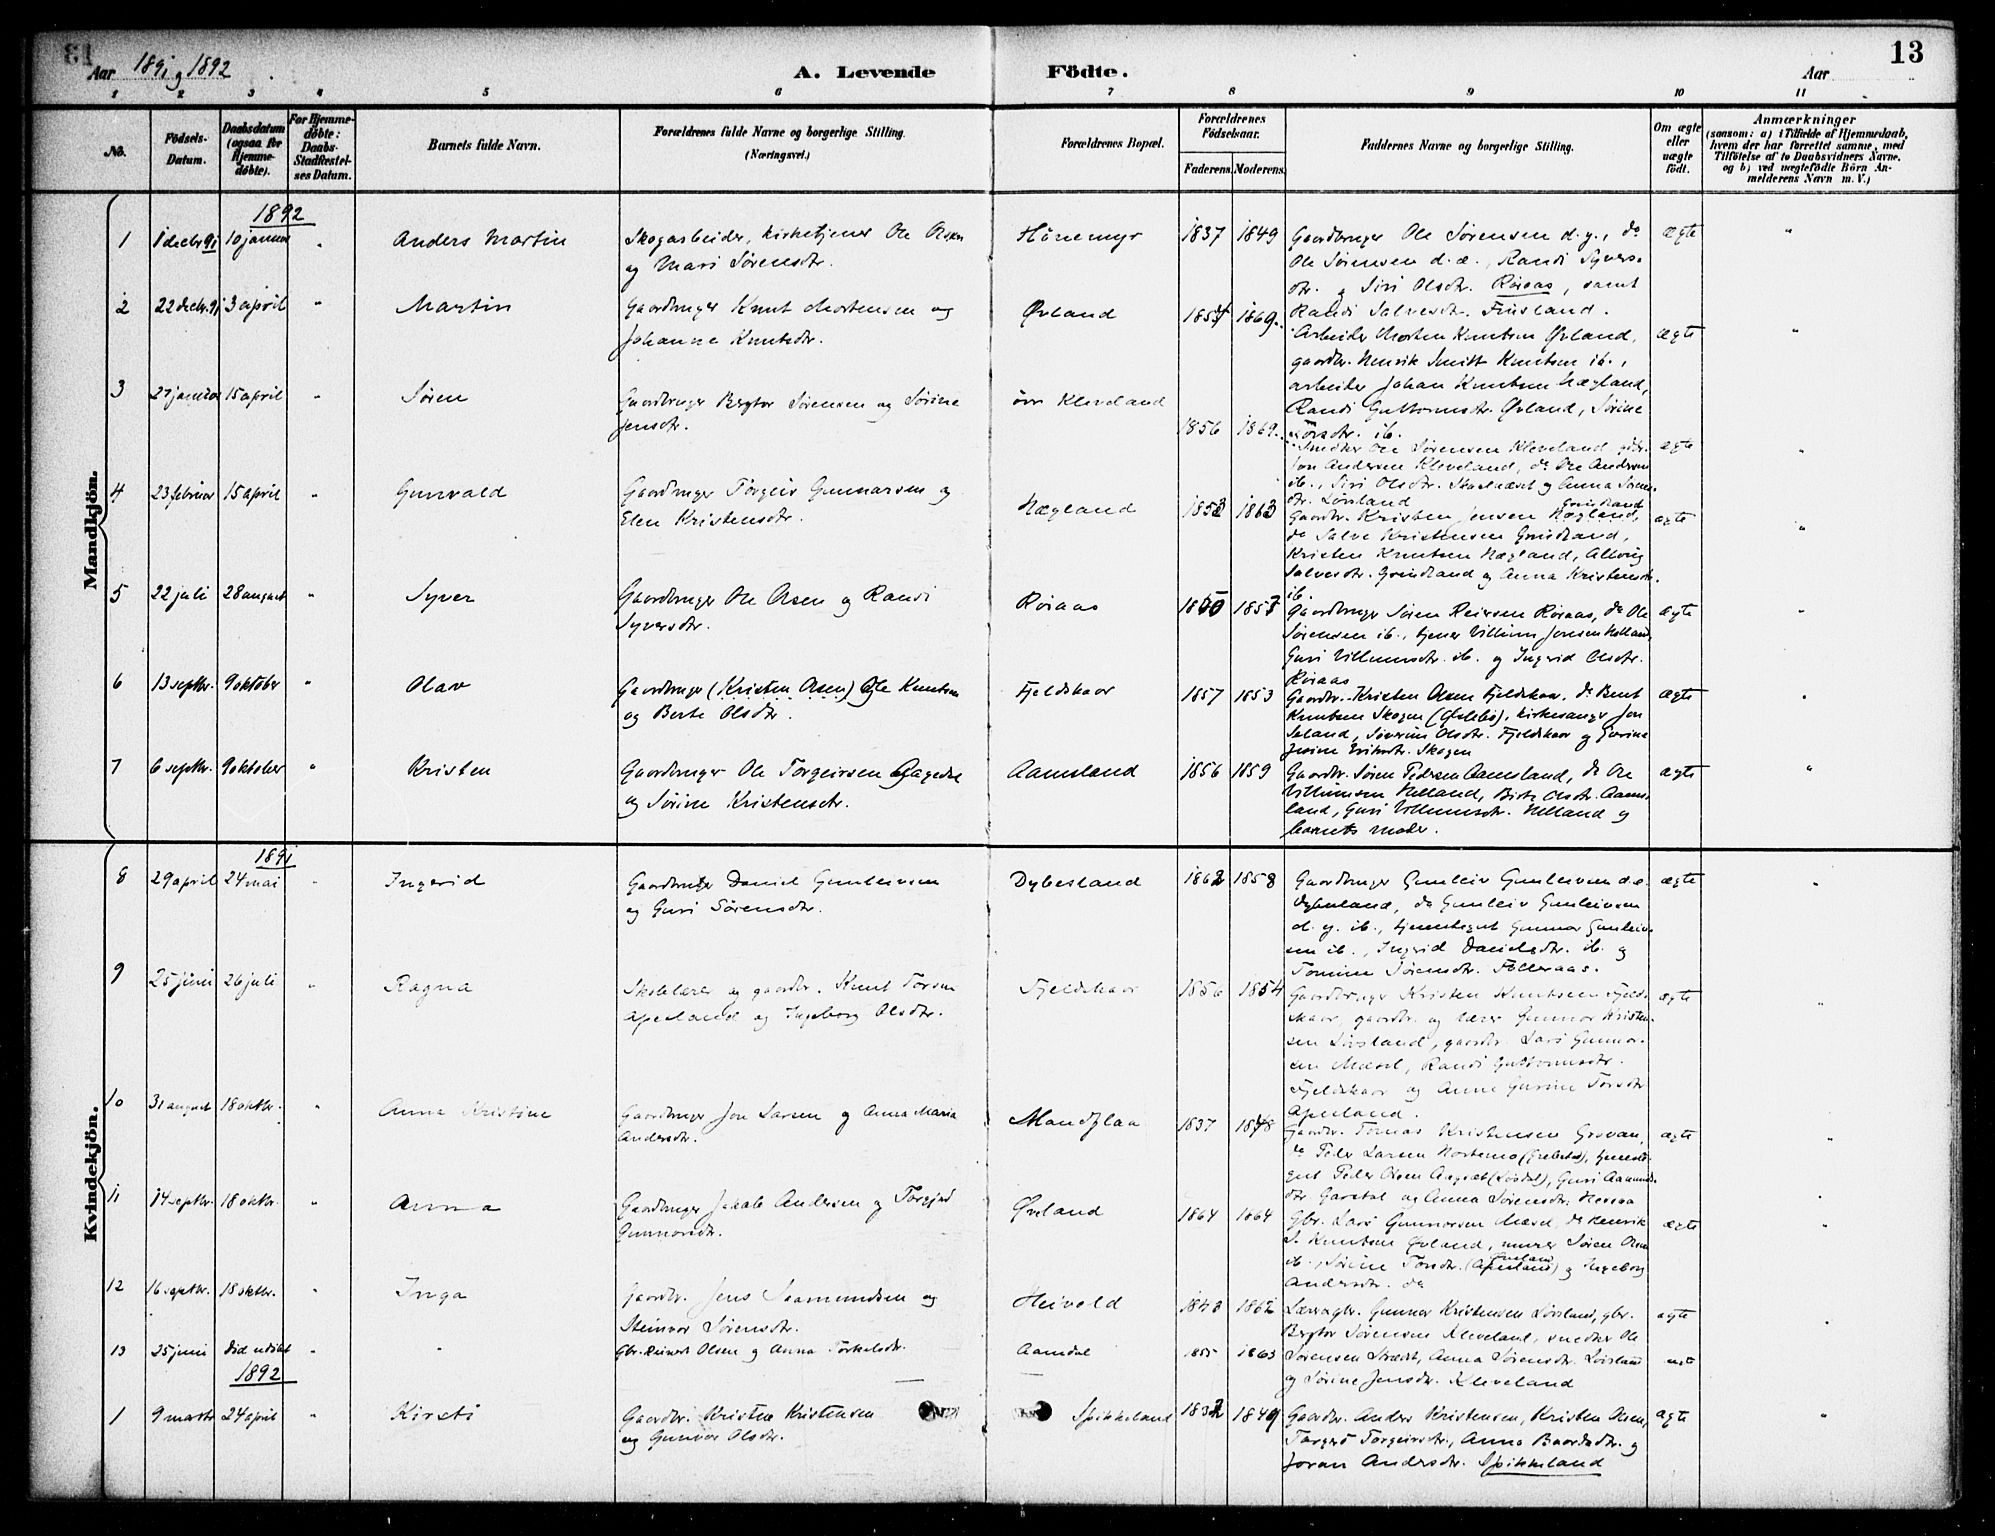 13
Aar 1891 og 1892
A. Levende Födte.
Aar
1 2 3 4 5 6 7 8 9 10 11
No.
Födsels-Datum.
Daabsdatum (ogsaa for Hjemme-döbte).
For Hjemme-döbte: Daabs-Stadfæstel-ses Datum.
Barnets fulde Navn.
Forældrenes fulde Navne og borgerlige Stilling. (Næringsvei.)
Forældrenes Bopæl.
Forældrenes Födselsaar.
Faderens. Moderens.
Faddernes Navne og borgerlige Stilling.
Om ægte eller uægte födt.
Anmærkninger
(saasom: a) i Tilfælde af Hjemmedaab, hvem der har forrettet samme, med Tilföielse af to Daabsvidners Navne. og b) ved uægtefödte Börn An-melderens Navn m. V.)
Mandkjön.
1892
1 1 decbr 91 10 januar " Anders Martin Skogarbeider, kirketjener Ole Olsen
og Mari Sørensdtr. Hønemyr 1837 1849
Gaardbruger Ole Sørensen d.y., do
Ole Sørensen d.æ., Randi Syvers-
dtr. og Siri Olsdtr. Røiaas, samt
Randi Salvesdtr. Finsland. ægte "
2 22 decbr. 91 3 april " Martin Gaardbruger Knut Mortensen og
Johanne Knutsdtr. Øvland 1857 1869
Arbeider Morten Knutsen Øvland,
gaardbr. Henrik Smitt Knutsen ib.,
arbeider Johan Knutsen Nægland,
Randi Guttormsdtr. Øvland, Sørine
Torsdtr. ib. ægte "
3 27 januar 15 april " Søren Gaardbruger Bergtor Sørensen og Sørine
Jensdtr. øvr Kleveland 1856 1869
Smedker Ole Sørensen Kleveland, gdbr.
Jon Andersen Kleveland, do Ole Andersen
ib., Siri Olsdtr. Skuland og Anna Sørens-
dtr. Løvsland ægte "
4 23 februar 15 april " Gunvald Gaardbruger Torgeir Gunnarsen og
Elen Kristensdtr. Nægland 1853 1863
Grindland
Gaardbr. Kristen Jensen Nægland,
do Salve Kristensen Grindland,
Kristen Knutsen Nægland, Allvig
Salvesdtr. Grindland og Anna Kristensdtr.
ib. ægte "
5 22 juli 28 august " Syver Gaardbruger Ole Olsen og Randi
Syversdtr. Røiaas 1850 1857
Gaardbruger Søren Reiersen Røiaas, do Ole
Sørensen ib., tjener Villum Jensen Helland,
Guri Villumsdtr. ib. og Ingerid Olsdtr.
Røiaas ægte "
6 13 septbr. 9 oktober " Olav Gaardbruger (Kristen Olsen) Ole Knutsen
og Berte Olsdtr. Fjeldskaar 1857 1853
Gaardbr. Kristen Olsen Fjeldskaar, do Bent
Knutsen Skogen (Øvlebø), kirkesanger Jon
Seland, Søverine Olsdtr. Fjeldskaar og Gurine
Jesine Eriksdtr. Skogen ægte "
7 6 septbr. 9 oktober " Kristen Gaardbruger Ole Torgeirsen Aagedal
og Sørine Kristensdtr. Aamsland 1856 1859
Gaardbr. Søren Pedersen Aamsland, do Ole
Villumsen Helland, Birte Olsdtr. Aams-
land, Guri Villumsdtr. Helland og
barnets moder. ægte "
Kvindekjön.
1891
8 29 april 24 mai " Ingerid Gaardbruger Daniel Gunleivsen
og Guri Sørensdtr. Dybesland 1862 1858
Gaardbruger Gunleiv Gunleivsen d.æ.
Dybesland, do Gunleiv Gunleivsen
d.y. ib., tjenestegut Gunnar Gunleiv-
sen ib., Ingerid Danielsdtr. ib. og
Tomine Sørensdtr. Folleraas. ægte "
9 25 juni 26 juli " Ragna Skolelærer og gaardbr. Knut Torsen
Apesland og Ingeborg Olsdtr. Fjeldskaar 1856 1854
Gaardbruger Kristen Knutsen Fjeld-
skaar, gaardbr. og lærer Gunnar Kristen-
sen Løvsland, gaardbr. Lars Gunnar-
sen Mæsel, Randi Guttormsdtr.
Fjeldskaar og Anne Gurine Torsdtr
Apesland. ægte "
10 31 august 18 oktbr. " Anna Kristine Gaardbruger Jon Larsen og Anna Maria
Andersdtr. Mandflaa 1837 1848
Gaardbr. Tomas Kristensen Grovan,
do Peder Larsen Hortemo (Øvlebø), tjeneste-
gut Peder Olsen Aagset (Løvdal), Guri Aamunds-
dtr. Garstøl og Anna Sørensdtr. Hessaa ægte "
11 14 septbr. 18 oktbr. " Anna Gaardbruger Jakob Andersen og Torgjerd
Gunnarsdtr. Øvland 1864 1864
Gbr. Lars Gunnarsen Mæsel, do Henrik
S. Knutsen Øvland, murer Søren Olsen
ib., Sørine Torsdtr. (Apesland) Øvland og Ingeborg
Andersdtr. do ægte "
12 16 septbr. 18 oktbr. " Inga Gaardbr. Jens Aamundsen og
Steinvor Sørensdtr. Heivold 1843 1862
Lærer og gbr. Gunnar Kristensen Løvsland, gbr.
Bergtor Sørensen Kleveland, snedker Ole
Sørensen Strædet, Anna Sørensdtr. Løvsland
og Sørine Jensdtr. Kleveland ægte "
13 25 juni Død udøbt " " Gbr. Reinert Olsen og Anna Torkelsdtr. Aamdal 1855 1863 ægte
1892
1 9 marts 24 april " Kirsti Gaardbr. Kristen Kristensen
og Gunvor Olsdtr. Spikkeland 1832 1849
Gaardbr. Anders Kristensen, Kristen Olsen,
Torgerd Torgeirsdtr., Anna Baardsdtr. og
Joran Andersdtr. Spikkeland ægte "